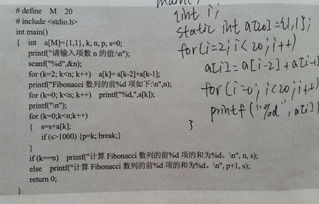 # define M 20
# include <stdio.h>
int main()
{ int a[M]={1,1}, k, n, p, s=0;
printf("请输入项数 n 的值:\n");
scanf("%d",&n);
for (k=2; k<n; k++) a[k]= a[k-2]+a[k-1];
printf("Fibonacci 数列的前%d 项如下:\n",n);
for (k=0; k<n; k++) printf("%d,",a[k]);
printf("\n");
for (k=0;k<n;k++)
{ s=s+a[k];
if (s>1000) {p=k; break;}
}
if (k==n) printf("计算 Fibonacci 数列的前%d 项的和为%d。\n", n, s);
else printf("计算 Fibonacci 数列的前%d 项的和为%d。\n", p+1, s);
return 0;
}
{int i;
static int a[20]={1,1};
for(i=2; i<20; i++)
a[i]=a[i-2]+a[i-
for(i=0; i<20; i++
printf("%d", a[i]
}